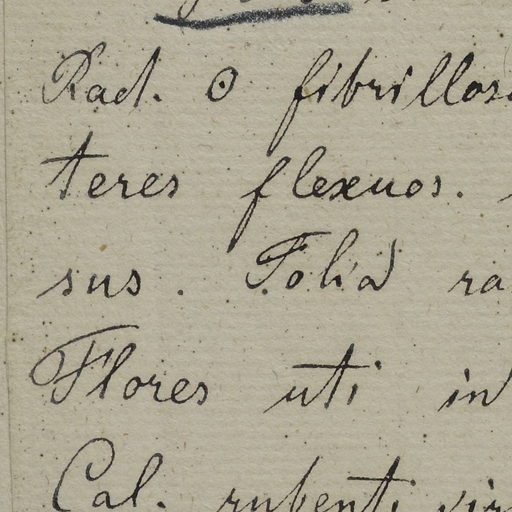 Rad. ʘ fibrillos
teres flexuos.
sus. Folia ra
Flores uti in
Cal. rubenti vir